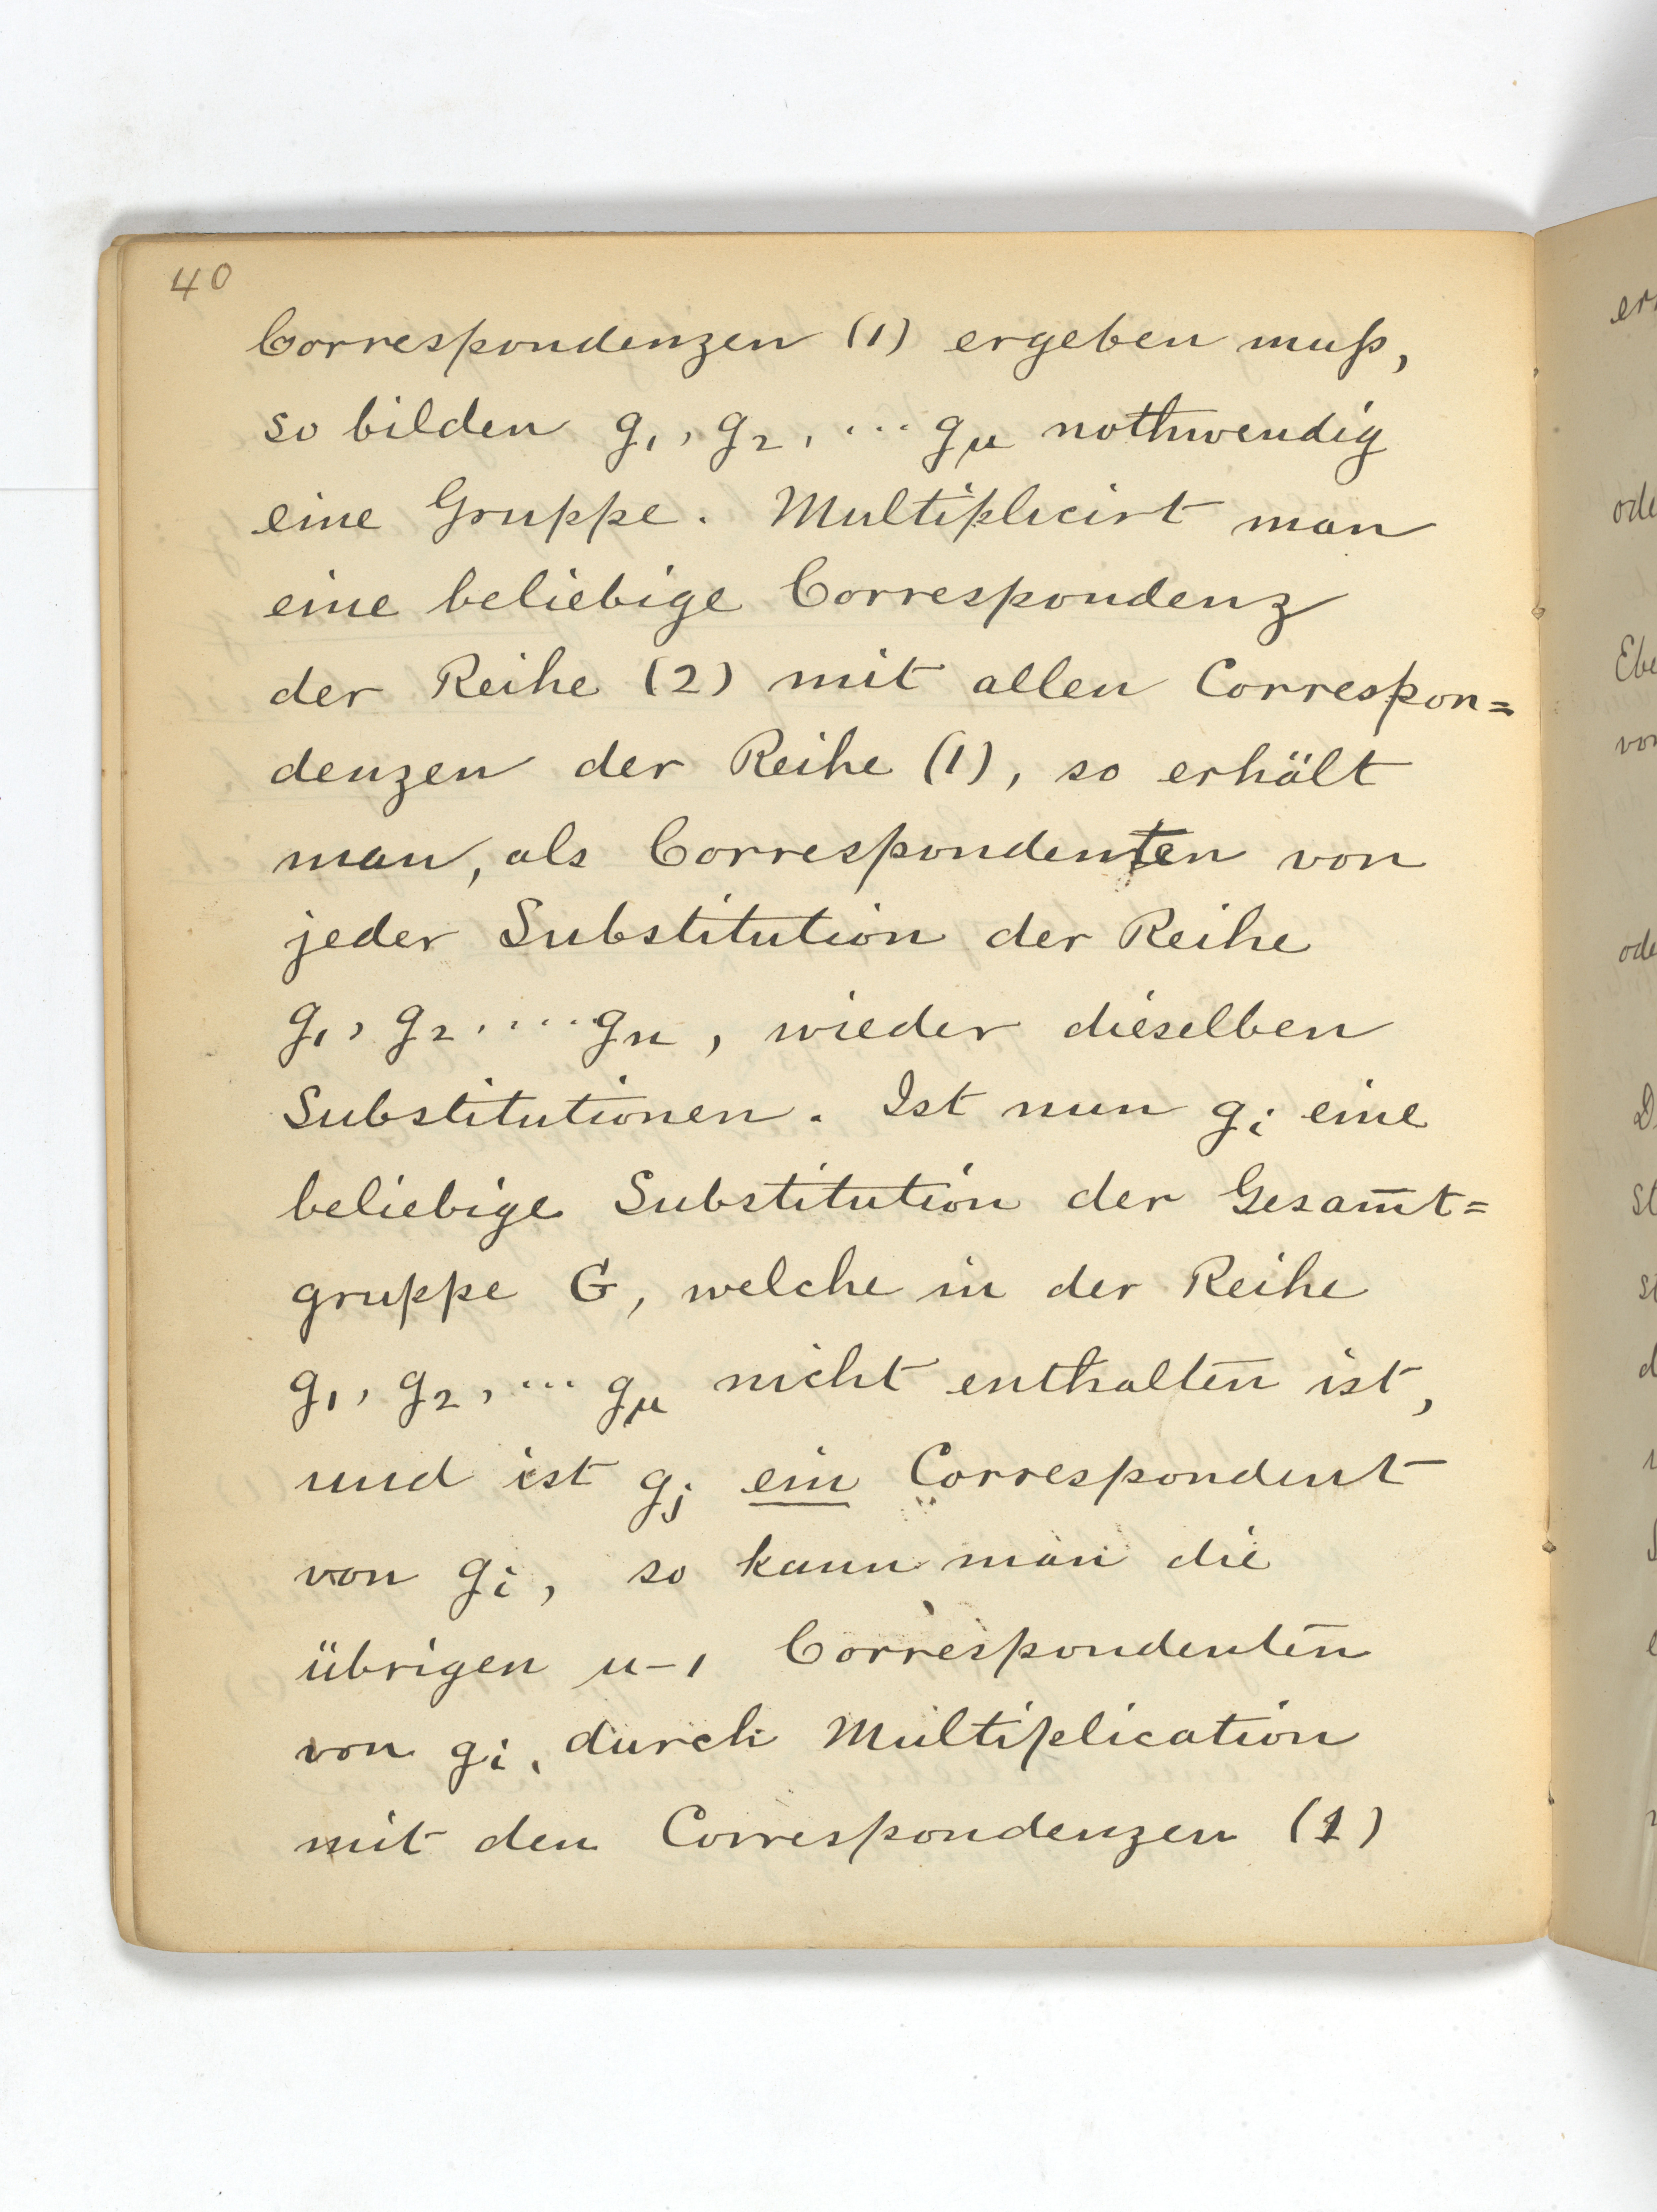 40
Correspondenzen (1) ergeben muß,
so bilden g₁, g₂, ... gμ nothwendig
eine Gruppe. Multiplicirt man
eine beliebige Correspondenz
der Reihe (2) mit allen Correspon=
denzen der Reihe (1), so erhält
man, als Correspondenten von
jeder Substitution der Reihe
g₁, g₂ .... gμ, wieder dieselben
Substitutionen. Ist nun gᵢ eine
beliebige Substitution der Gesam̅t=
gruppe G, welche in der Reihe
g₁, g₂, ... gμ nicht enthalten ist,
und ist gⱼ ein Correspondent
von gᵢ, so kann man die
übrigen μ-1 Correspondenten
von gᵢ, durch Multiplication
mit den Correspondenzen (1)
ode
Ebe
von
ode